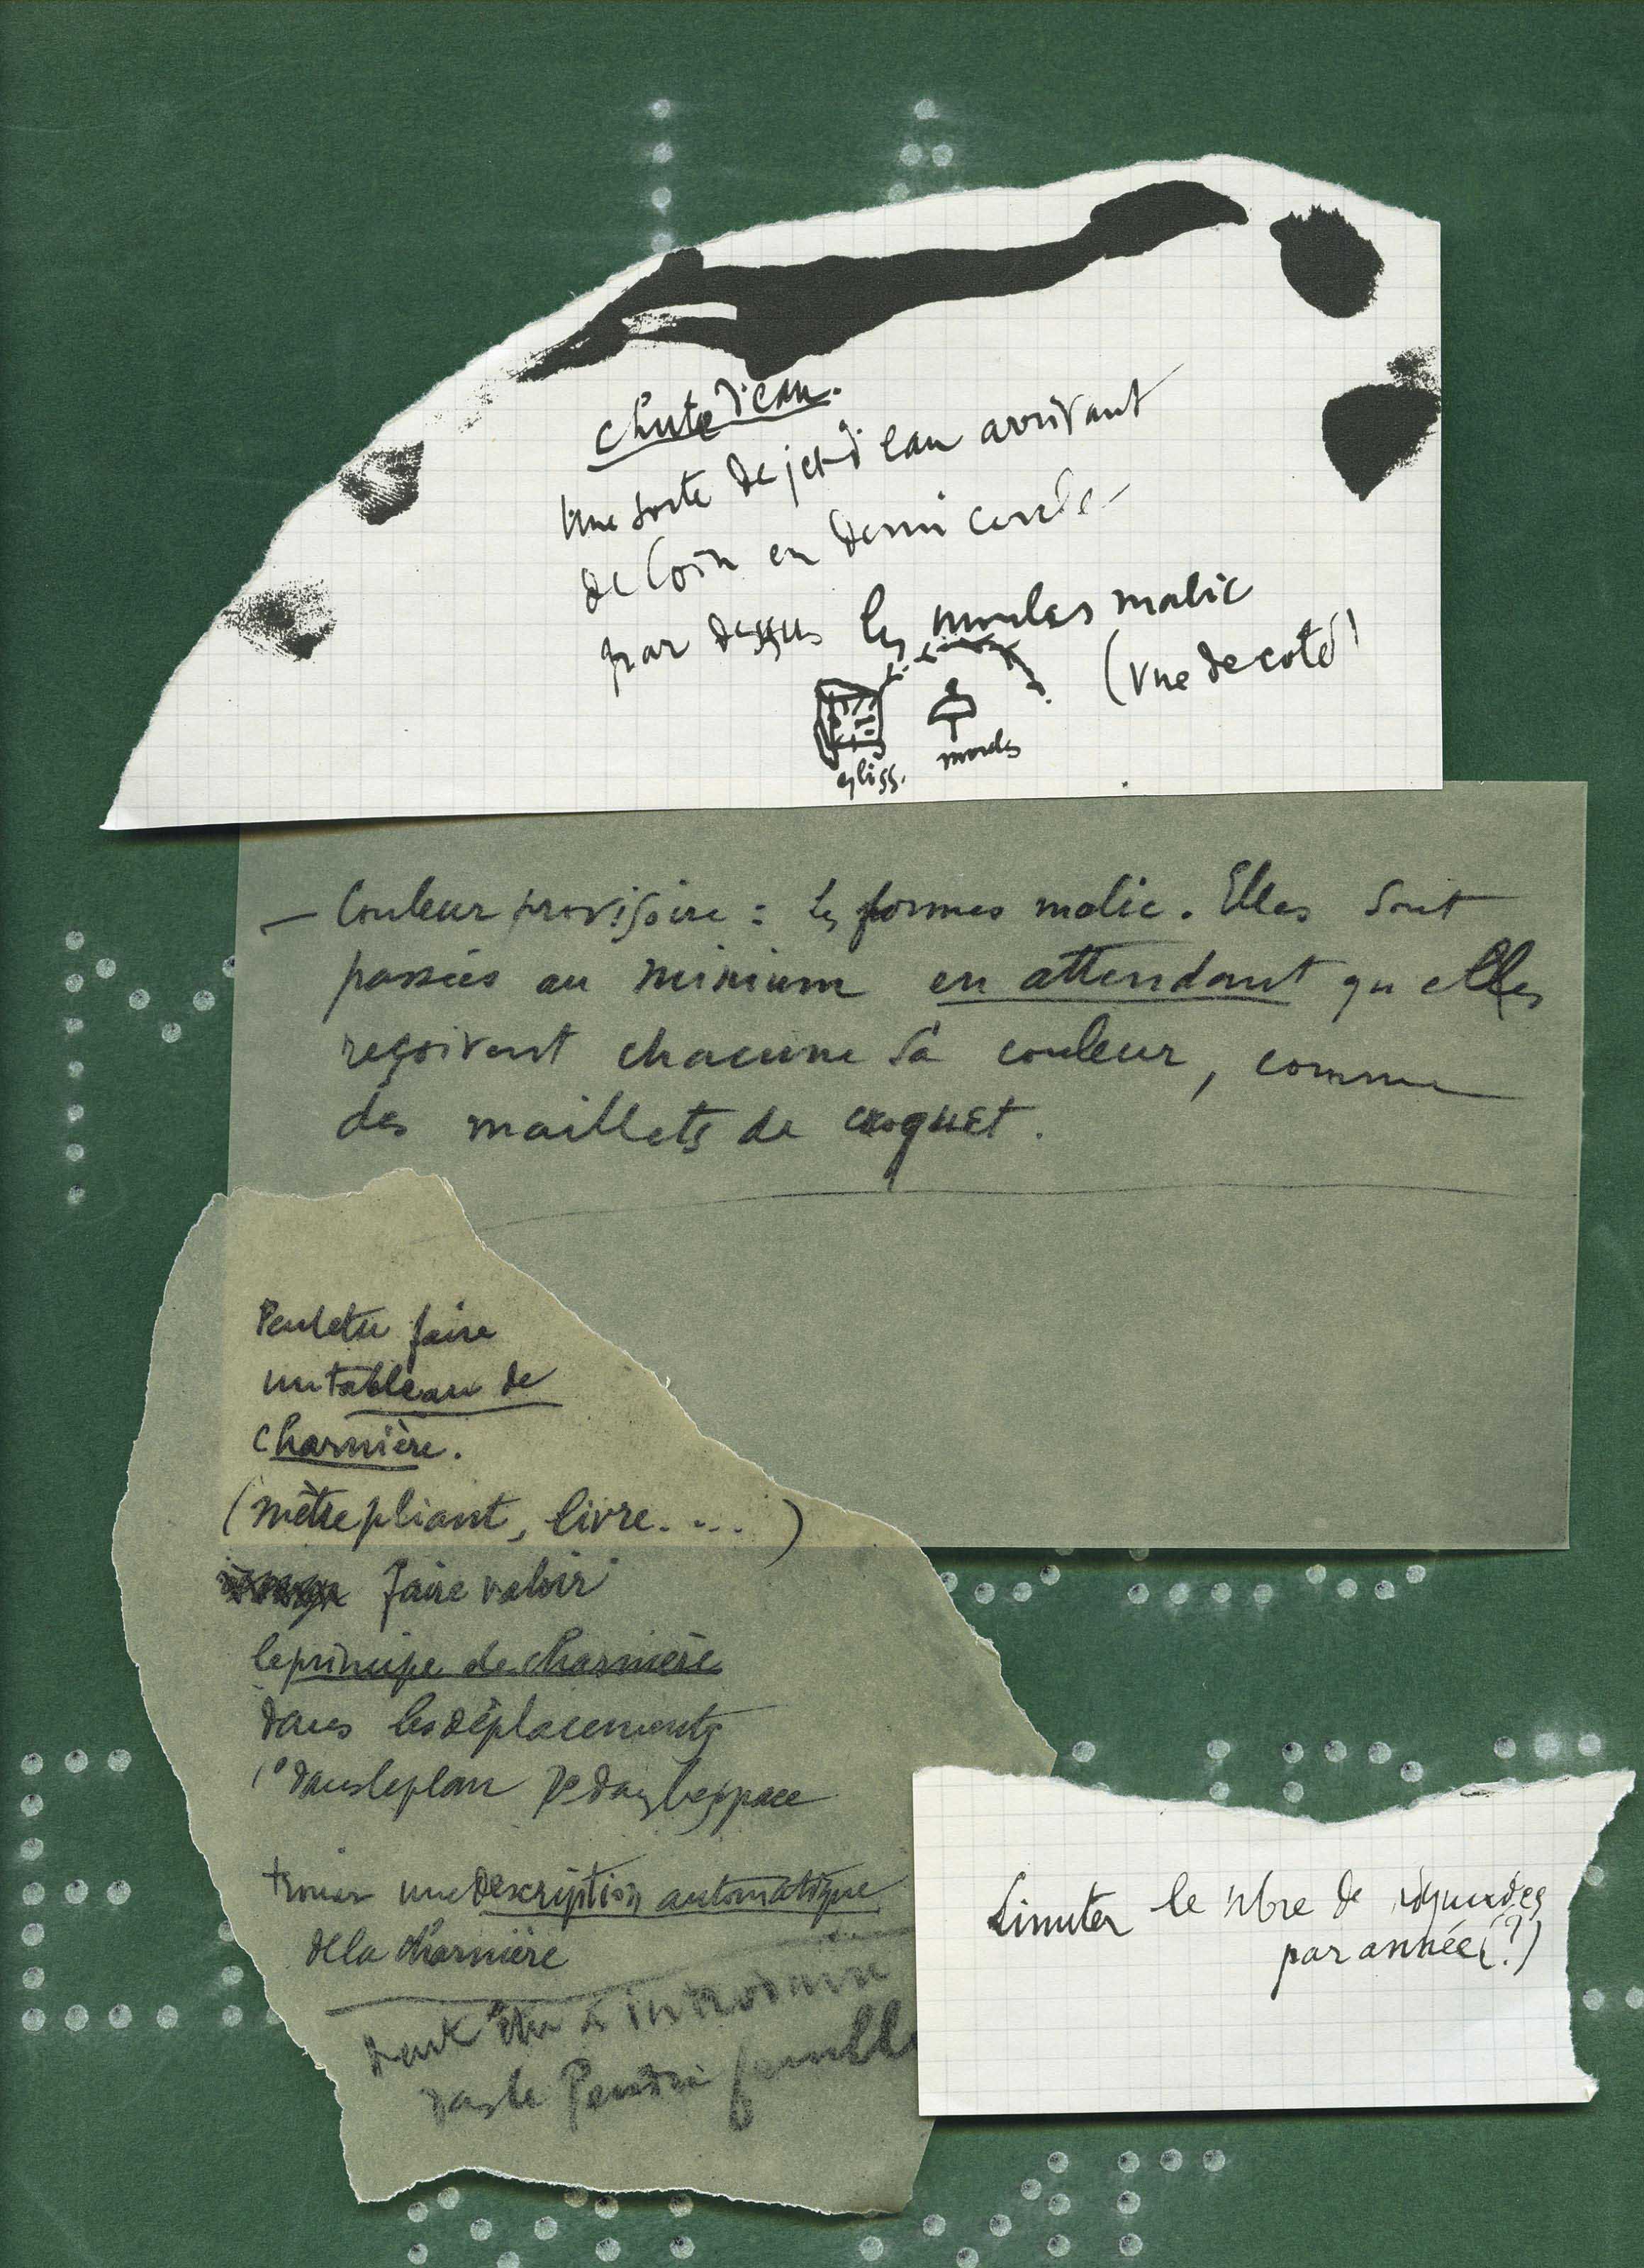 chute d'eau.
Une sorte de jet d'eau arrivant
de loin en demi cercle –
par dessus les moules malic
(vue de coté)
gliss.
moules
– Couleur provisoire : les formes malic. Elles sont
passées au minium en attendant qu'elles
reçoivent chacune sa couleur, comme
des maillets de croquet.
Peut etre faire
un tableau de
charnière.
(mètre pliant, livre....)
faire valoir
le principe de charnière
dans les déplacements
1° dans le plan 2e dans l'espace
trouver une description automatique
de la charnière
peut être à introduire
dans le Pendu femelle
Limiter le nbre de rdymades
par année (?)